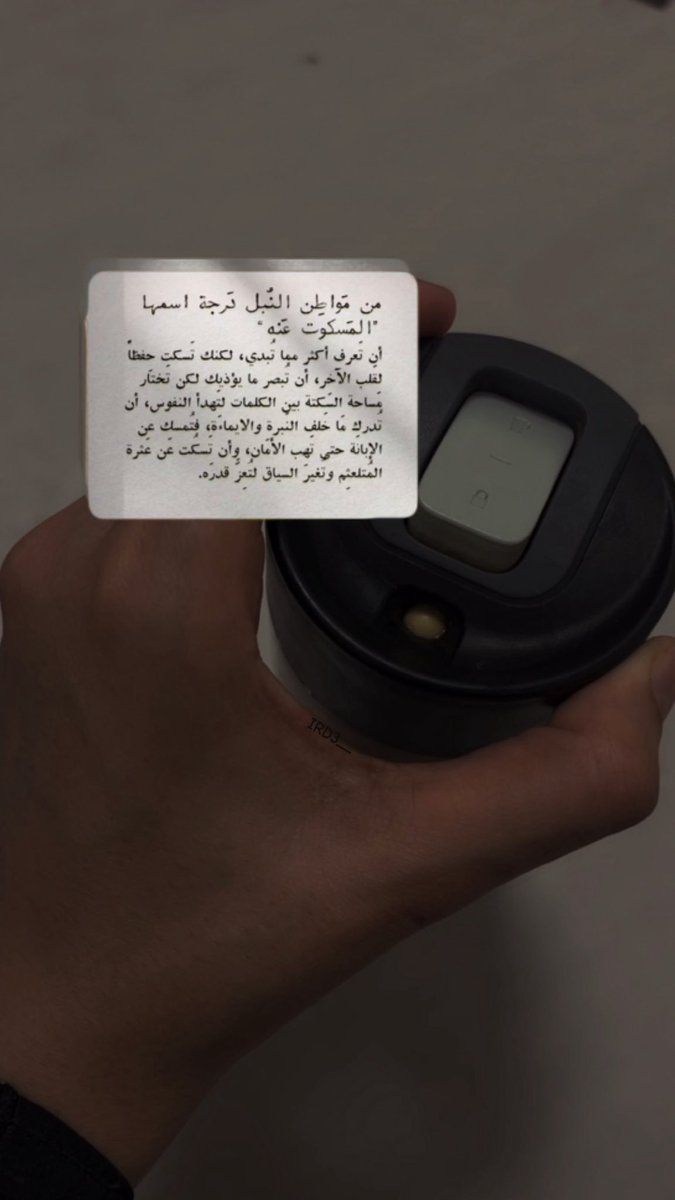 من مَواطِن النُبل دَرجة اسمها
"المَسكوت عَنه"
أن تَعرف أكثر مما تُبدي، لكنك تَسكت حفظاً
لقلب الآخر، أن تُبصر ما يؤذيك لكن تَختار
مَساحة السَكتة بين الكلمات لتَهدأ النفوس، أن
تُدرك مَا خَلف النبرة والايماءة، فتُمسك عن
الإبانة حتى تَهب الأمَان، وأن تَسكت عَن عَثرة
المُتلعثِم وتغيرَ السياق لتُعِزَّ قدرَه.
IRD3__